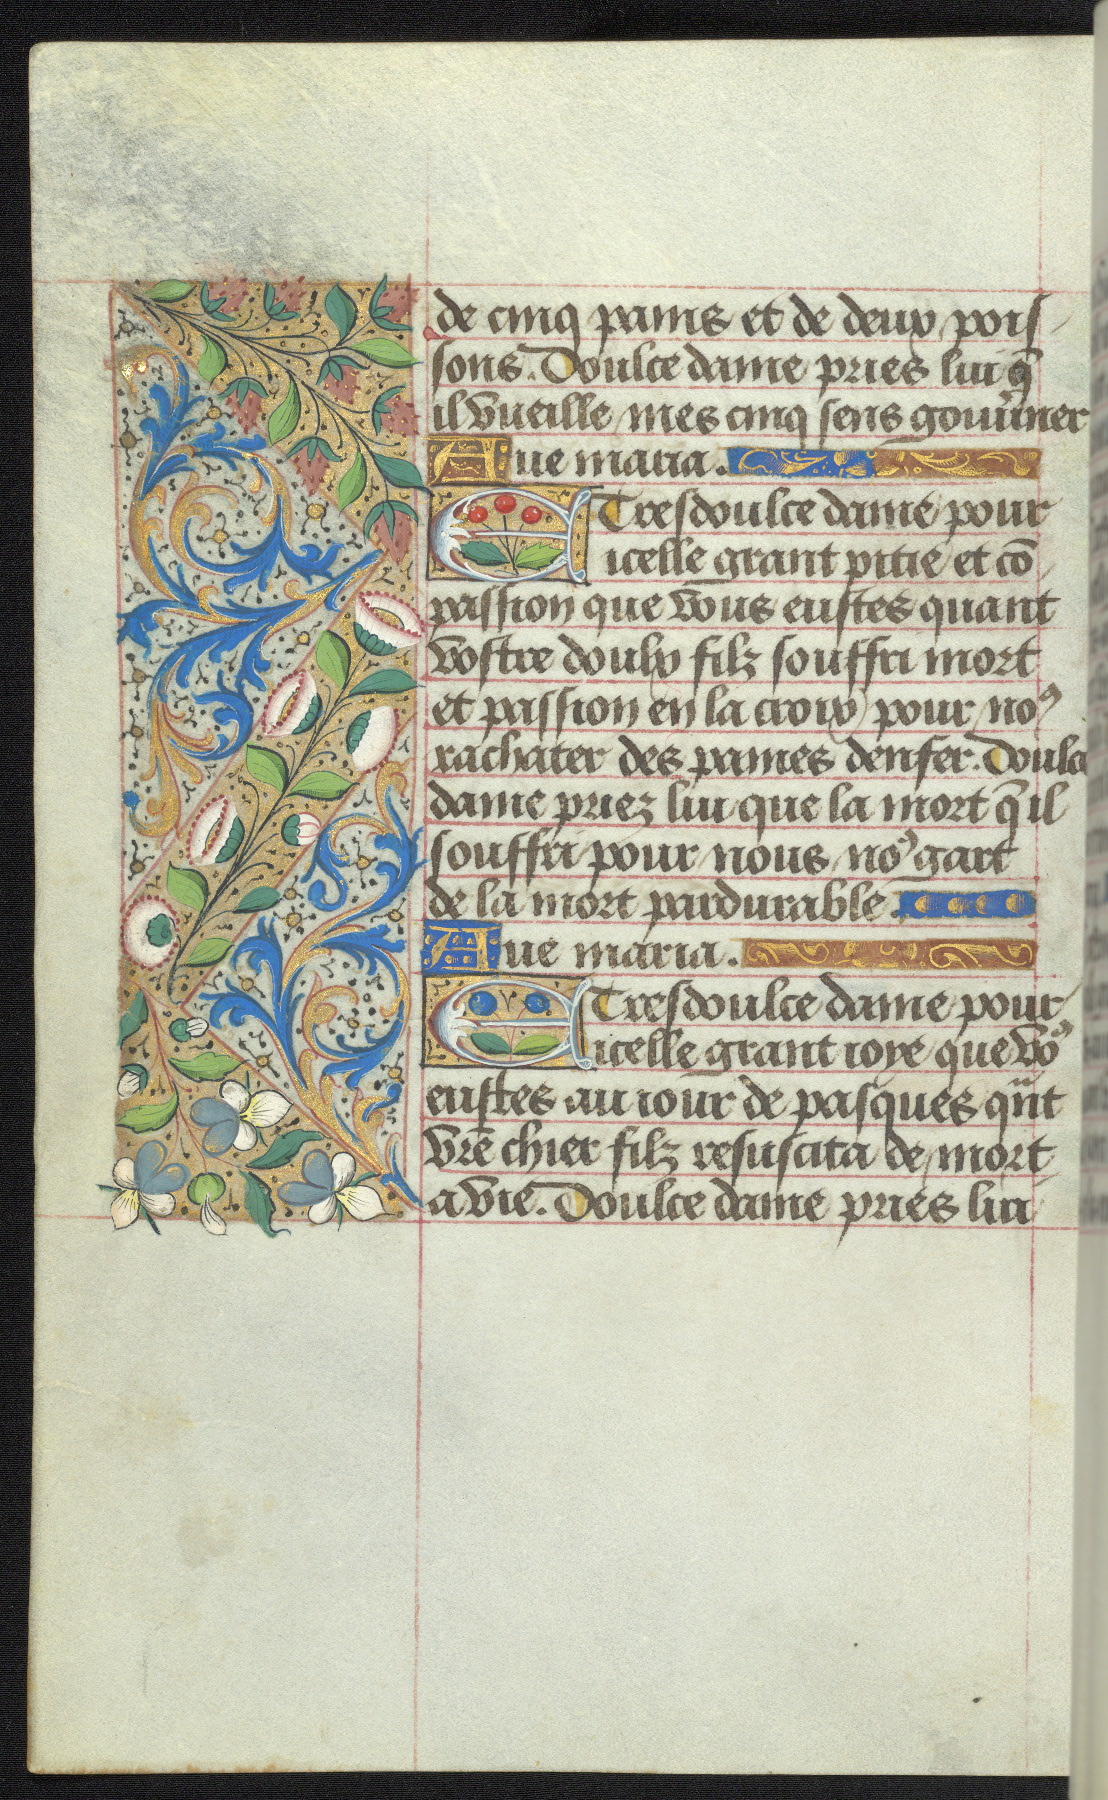 de cinq pains et de deux pois
sons. Doulce dame pries lui q̄
il vueille mes cinq sens gouu̾ner
Aue maria.
E Tresdoulce dame pour
icelle grant pitie et cō
passion que vous eustes quant
vostre doulx filz souffri mort
et passion en la croix pour noꝰ
rachater des paines denfer. Doulce
dame priez lui que la mort q̄ il
souffri pour nous noꝰ gart
de la mort pardurable.
Aue maria.
E Tresdoulce dame pour
icelle grant ioye que voꝰ
eustes au iour de pasques qūt
vr̄e chier filz resuscita de mort
a vie. Doulce dame pries lui